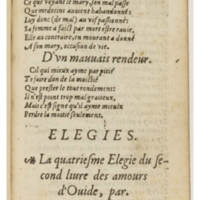 Ce que voyant le mary, s'en mal passe
Que medecins avoient habandonnée
Luy donc (de mal) au vif passionné
Sa femme a faict par mort estre ravie,
Elle au contraire, en mourant a donné
A son mary, occasion de vie.
D'vn mauuais rendeur.
Cil qui mieux ayme par pitié
Te faire don de la moitié
Que prester le tout rendement
Il n'est point trop mal gracieux,
Mais c'est signe qu'il ayme mieux
Perdre la moitié seulement.
ELEGIES.
La quatriesme Elegie du second
liure des amours
d'Ouide, par.